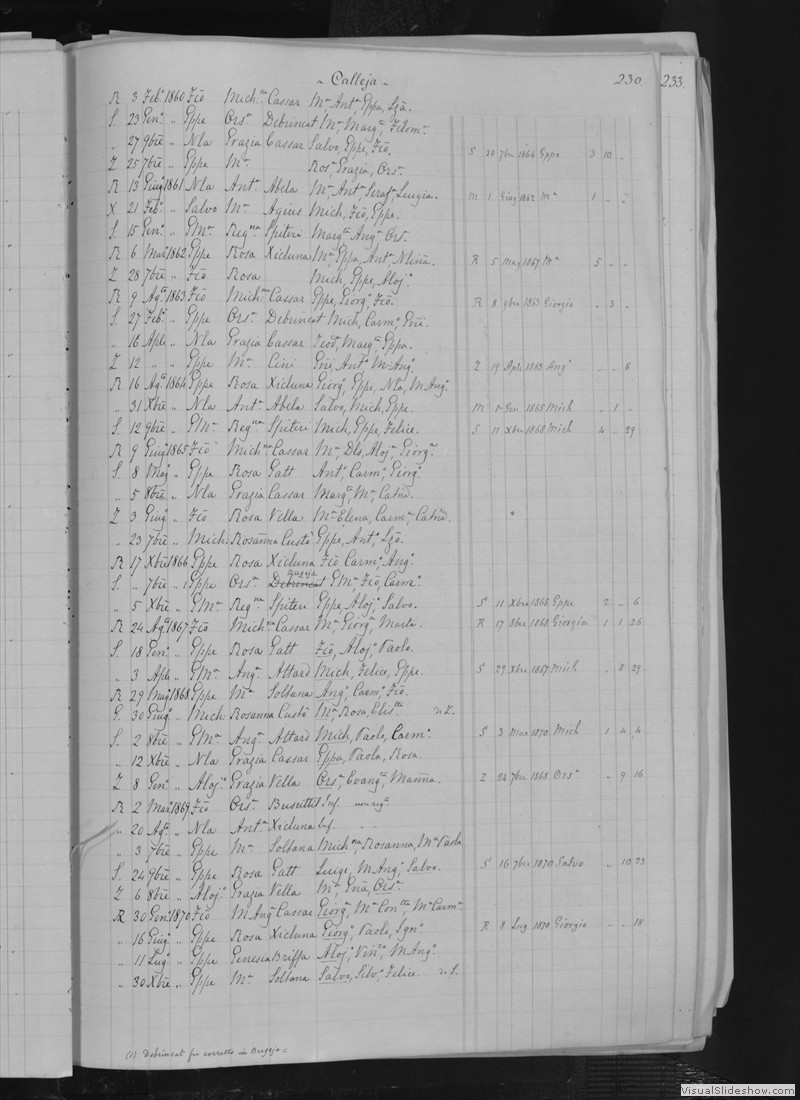 - Calleja -
230
233.
R 3 Feb.º 1860 Fcō Mich.na Cassar Mª, Antª, Gppa, Lzā.
S. 23 Gen.º „ Gppe Orsª Debrincat Mª, Margª, Filomª.
„ 27 9bre „ Nla Grazia Cassar Salvo, Gppe, Fcō.
S 30 7bre 1864 Gppe 3 10 -
Z 25 7bre „ Gppe Mª Rosª, Grazia, Orsª.
R 13 Giugº 1861 Nla Antª Abela Mª, Antª, Serafª, Luigia.
M 1 Giug 1862 Mª 1 - -
X 21 Feb.º „ Salvo Mª Agius Mich, Fcō, Gppe.
S. 15 Gen.º „ GMª Reg.na Spiteri Marg.ta Angª Orsª.
R 6 Marº 1862 Gppe Rosa Xicluna Mª, Gppa, Antª
R 5 Mag 1867 Mª 5 - -
Z 28 7bre „ Fcō Rosa Mich, Gppe, Alojº.
R 9 Agº 1863 Fcō Mich.na Cassar Gppe, Giorgº, Fcō.
R 8 9bre 1863 Giorgio - 3 -
S. 27 Feb.º „ Gppe Orsª Debrincat Mich, Carmº,
„ 16 Aple „ Nla Grazia Cassar Teodª, Margª, Gppa.
Z 12 „ „ Gppe Mª Cini Antº, M.Angº.
Z 19 Aprl 1863 Angº - - 6
R 16 Agº 1864 Gppe Rosa Xicluna Giorgº, Gppe, Nla, M.Angº.
„ 31 Xbre „ Nla Antª Abela Salvo, Mich, Gppe.
M 1 Gen 1865 Mich - 1 -
S. 12 9bre „ GMª Reg.na Spiteri Mich, Gppe, Felice.
S 11 Xbre 1868 Mich 4 - 29
R 9 Giugº 1865 Fcō Mich.na Cassar Mª, Dls, Alojª, Giorgª.
S. 8 Magº „ Gppe Rosa Gatt Antº, Carmº, Giorgº.
„ 5 8bre „ Nla Grazia Cassar Margª, Mª, Catnā.
Z 3 Giugº „ Fcō Rosa Vella Mª Elena, Carmª, Catnā.
„ 23 7bre „ Mich. Rosanna Custò Gppe, Antº, Lzō.
R 17 Xbre 1866 Gppe Rosa Xicluna Fcō, Carmº, Angº.
Bugeja
S. „ 7bre „ Gppe Orsª Debrincat GMª, Fcō, Carmº.
„ 5 Xbre „ GMª Reg.na Spiteri Gppe, Alojº, Salvo.
S 11 Xbre 1868 Gppe 2 - 6
R 24 Agº 1867 Fcō Mich.na Cassar Mª, Giorgª, Marta.
R 17 8bre 1868 Giorgia 1 1 26
S. 18 Gen.º „ Gppe Rosa Gatt Fcō, Alojº, Paolo.
„ 3 Aple „ GMª Angª Attard Mich, Felice, Gppe.
S 29 Xbre 1867 Mich - 8 29
R 29 Magº 1868 Gppe Mª Soltana Angº, Carmº, Fcō.
G. 30 Giugº „ Mich. Rosanna Custò Mª, Rosa, Elis.tta di Z.
S. 2 8bre „ GMª Angª Attard Mich, Paolo, Carmº.
S 3 Mar 1870 Mich 1 4 4
„ 12 Xbre „ Nla Grazia Cassar Gppa, Paola, Rosa.
Z 8 Gen.º „ Alojº Grazia Vella Orsª, Evangª,
Z 24 7bre 1868 Orsª - 9 16
R 2 Marº 1869 Fcō Orsª Busuttil Inf.
„ 20 Agº „ Nla Antª Xicluna Inf. - -
„ 3 7bre „ Gppe Mª Soltana Mich.na, Rosanna, Mª Paola
S. 24 9bre „ Gppe Rosa Gatt Luigi, M.Angº, Salvo.
S 16 7bre 1870 Salvo - 10 23
Z 6 8bre „ Alojº Grazia Vella Mª, Orsª.
R 30 Gen.º 1870 Fcō M.Angª Cassar Giorgª, Mª Con.tta, Mª Carmª.
„ 16 Giugº „ Gppe Rosa Xicluna Giorgº, Paolo, Ignº.
R 8 Lug 1870 Giorgio - - 18
„ 11 Lugº „ Gppe Genesia Briffa Alojº, Vin.zo, M.Angº.
„ 30 Xbre „ Gppe Mª Soltana Salvo, Silvº, Felice. di S.
(1) Debrincat fu corretto in Bugeja
VisualSlideshow.com